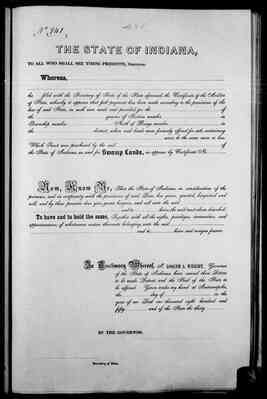 THE STATE OF INDIANA,
TO ALL WHO SHALL SEE THESE PRESENTS, GREETING:
Whereas,
ha filed with the Secretary of State of the State aforesaid, the Certificate of the Auditor
of State, whereby it appears that full payment has been made according to the provisions of the
law of said State, in such case made and provided for the of
the quarter of Section number in
Township number North of Range number in
the district, when such lands were formerly offered for sale, containing
acres, be the same more or less,
Which Tract was purchased by the said of
the State of Indiana, as and for Swamp Lands, as appears by Certificate No.
Now, Know Ye, That the State of Indiana, in consideration of the
premises, and in conformity with the provisions of said, Have given, granted, bargained and
sold, and by these presents does give, grant, bargain, and sell unto the said
and to heirs the said tract above described.
To have and to hold the same, Together with all the rights, privileges, immunities, and
appurtenances, of whatsoever nature thereunto belonging, unto the said
and to heirs and assigns forever.
In Testimony Whereof, I, JOSEPH A. WRIGHT, Governor
of the State of Indiana have caused these Letters
to be made Patent, and the Seal of the State to
be affixed. Given under my hand at Indianapolis,
the day of in the
year of our Lord one thousand eight hundred and
fifty and of the State the thirty
BY THE GOVERNOR:
Secretary of State.